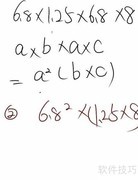 6.8×1.25×6.8×8
a×b×a×c
=a²(b×c)
② 6.8²×(1.25×8
软件技巧